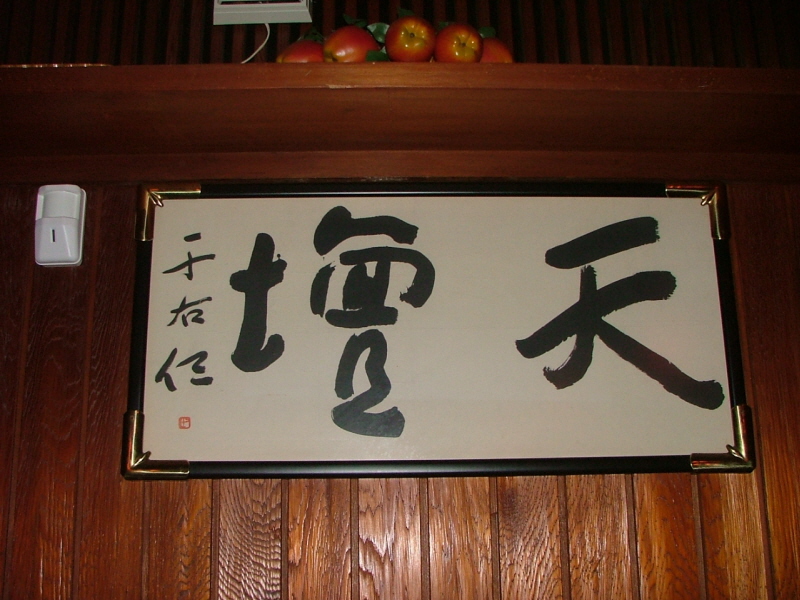 天壇
于右任